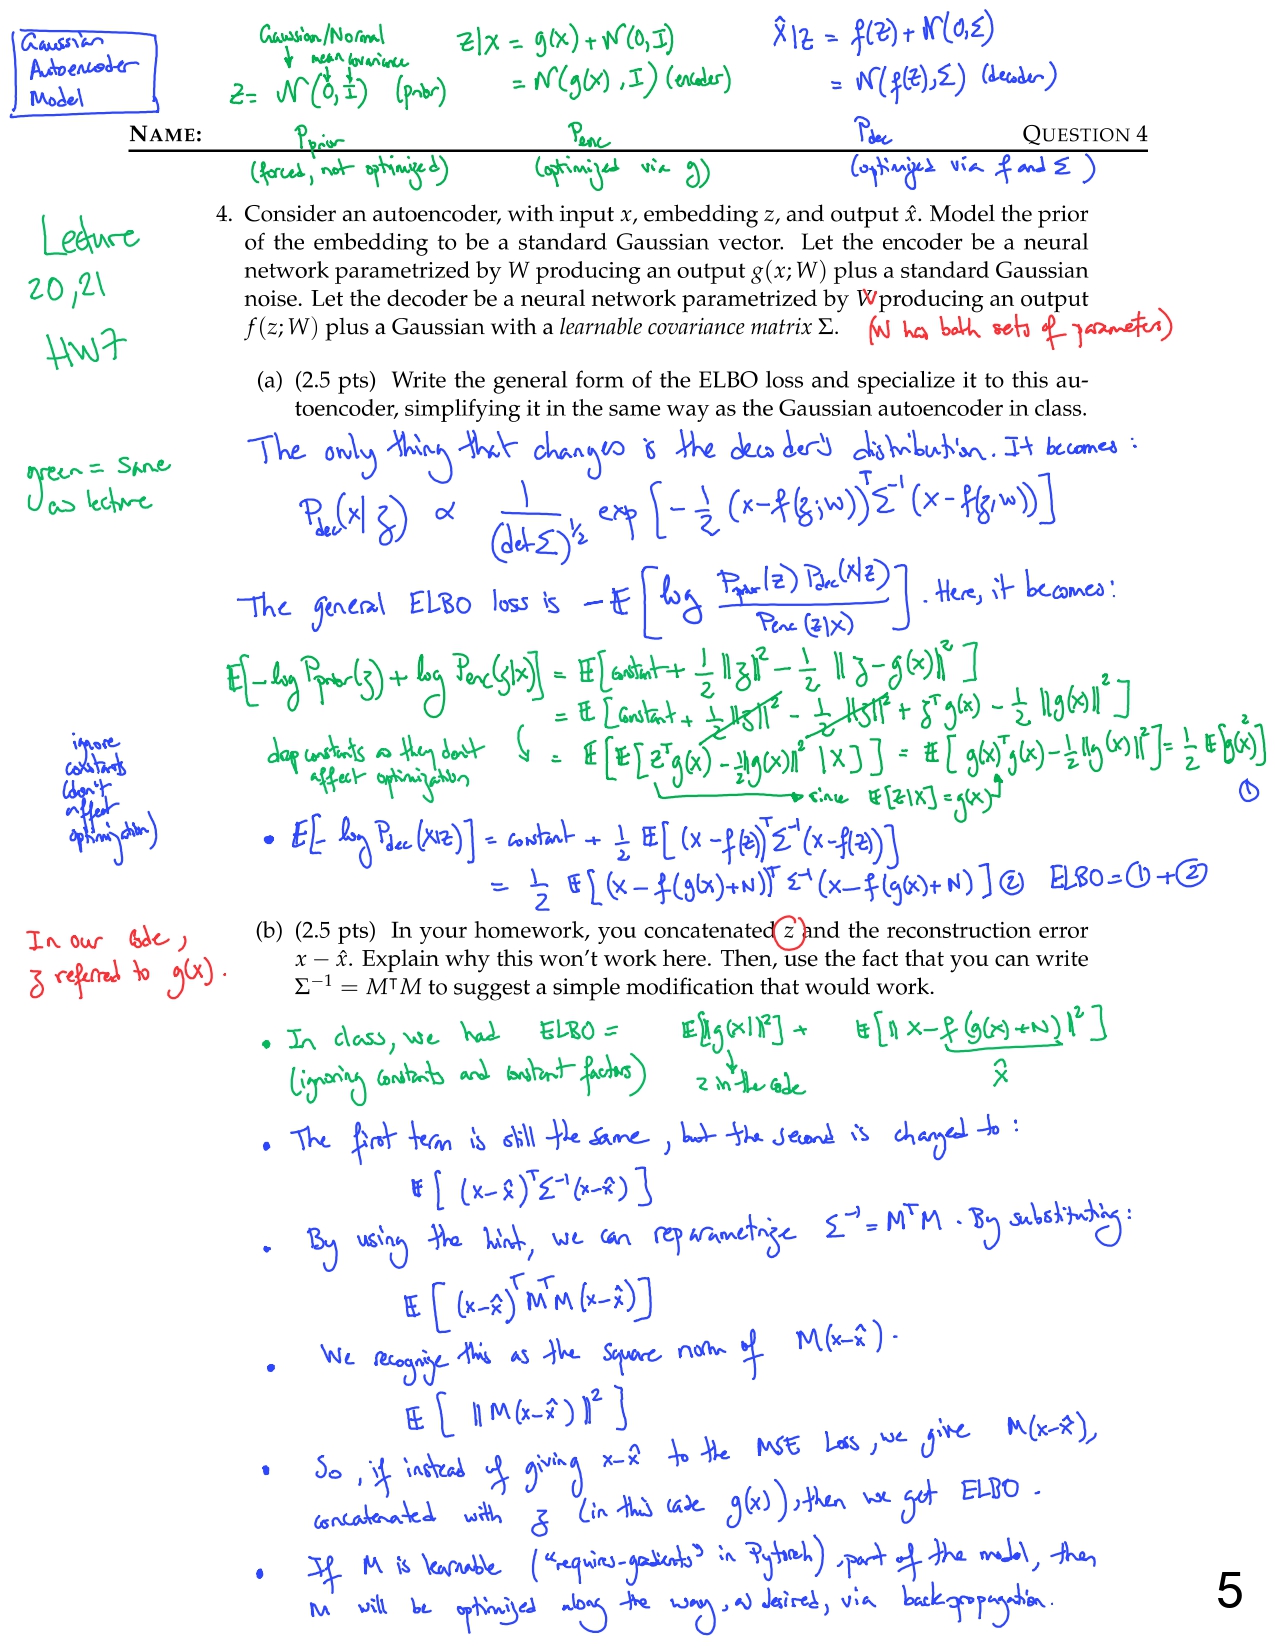 Gaussian
Autoencoder
Model
Gaussian/Normal
mean covariance
Z = N(0, I) (prior)
P_prior
(forced, not optimized)
z|x = g(x) + N(0, I)
= N(g(x), I) (encoder)
P_enc
(optimized via g)
x̂|z = f(z) + N(0, Σ)
= N(f(z), Σ) (decoder)
P_dec
(optimized via f and Σ)
NAME: QUESTION 4
Lecture
20, 21
HW7
4. Consider an autoencoder, with input x, embedding z, and output x̂. Model the prior
of the embedding to be a standard Gaussian vector. Let the encoder be a neural
network parametrized by W producing an output g(x; W) plus a standard Gaussian
noise. Let the decoder be a neural network parametrized by W producing an output
f(z; W) plus a Gaussian with a learnable covariance matrix Σ. (W has both sets of parameters)
(a) (2.5 pts) Write the general form of the ELBO loss and specialize it to this au-
toencoder, simplifying it in the same way as the Gaussian autoencoder in class.
green = same
as lecture
The only thing that changes is the decoder's distribution. It becomes:
P_dec(x|z) ∝ 1/(det Σ)^{1/2} exp[-1/2 (x-f(z;w))^T Σ^{-1} (x-f(z;w))]
The general ELBO loss is -E[log P_prior(z) P_dec(x|z) / P_enc(z|x)]. Here, it becomes:
E[-log P_prior(z) + log P_enc(z|x)] = E[constant + 1/2 ||z||² - 1/2 ||z - g(x)||²]
= E[constant + 1/2 ||z||² - 1/2 ||z||² + z^T g(x) - 1/2 ||g(x)||²]
drop constants as they don't
affect optimization
= E[E[z^T g(x) - 1/2 ||g(x)||² | X]] = E[g(x)^T g(x) - 1/2 ||g(x)||²] = 1/2 E[g(x)²]
since E[Z|X] = g(x)
①
ignore
constants
(don't
affect
optimization)
• E[-log P_dec(x|z)] = constant + 1/2 E[(x-f(z))^T Σ^{-1} (x-f(z))]
= 1/2 E[(x - f(g(x)+N))^T Σ^{-1} (x - f(g(x)+N)] ② ELBO = ① + ②
(b) (2.5 pts) In your homework, you concatenated z and the reconstruction error
x − x̂. Explain why this won't work here. Then, use the fact that you can write
Σ⁻¹ = M⊤M to suggest a simple modification that would work.
In our code,
z referred to g(x).
• In class, we had ELBO = E[||g(x)||²] + E[||x - f(g(x)+N)||²]
(ignoring constants and constant factors)
z in the code
x̂
• The first term is still the same, but the second is changed to:
E[(x-x̂)^T Σ^{-1} (x-x̂)]
• By using the hint, we can reparametrize Σ^{-1} = M^T M. By substituting:
E[(x-x̂)^T M^T M (x-x̂)]
• We recognize this as the square norm of M(x-x̂).
E[||M(x-x̂)||²]
• So, if instead of giving x-x̂ to the MSE Loss, we give M(x-x̂),
concatenated with z (in this case g(x)), then we get ELBO.
• If M is learnable ("requires-gradients" in Pytorch), part of the model, then
M will be optimized along the way, as desired, via backpropagation.
5